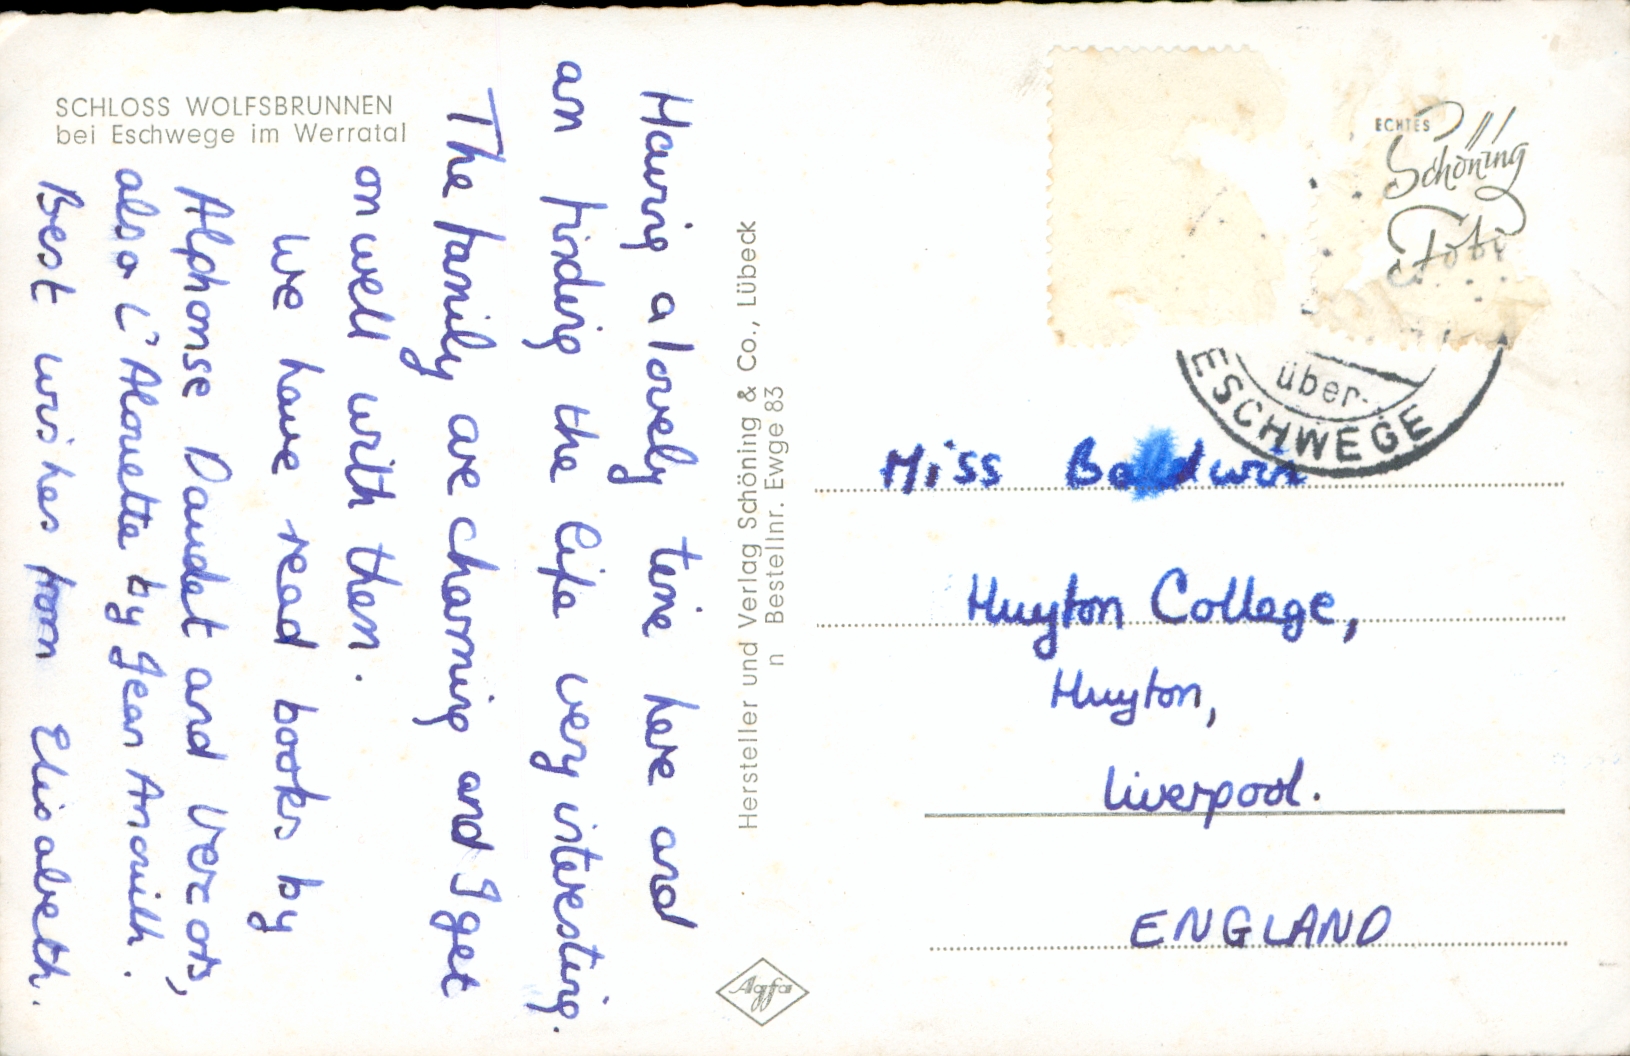 SCHLOSS WOLFSBRUNNEN
bei Eschwege im Werratal
Having a lovely time here and
am finding the life very interesting.
The family are charming and I get
on well with them.
We have read books by
Alphonse Daudet and Vercors,
also L'Alouette by Jean Anouilh.
Best wishes from Elisabeth.
Hersteller und Verlag Schöning & Co., Lübeck
n Bestellnr. Ewge 83
Agfa
ECHTES
Schöning
Foto
über
ESCHWEGE
Miss Baldwin
Huyton College,
Huyton,
Liverpool.
ENGLAND